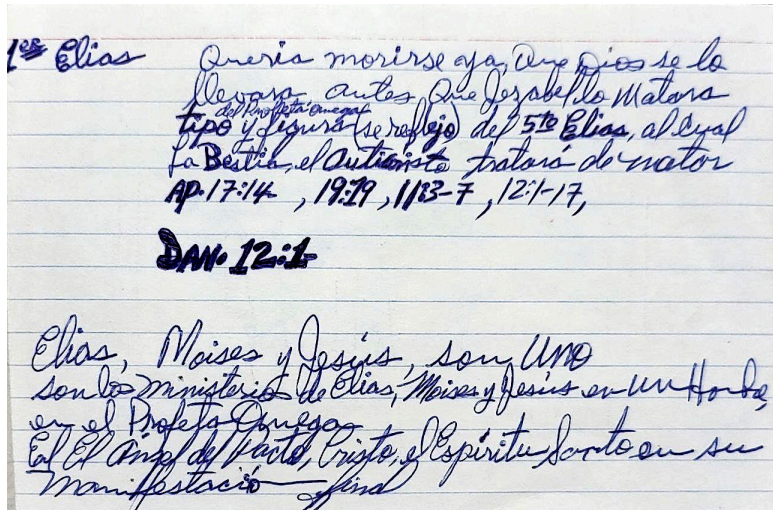 1er Elias Queria morirse ya, Que Dios se lo
llevara antes Que Jezabel lo Matara
del Profeta Omega
tipo y figura (se reflejo) del 5to Elias, al Cual
La Bestia, el Anticristo tratará de matar
AP. 17:14 , 19:19 , 11:3-7 , 12:1-17,
DAN. 12:1-
Elias, Moises y Jesús, son UNO
son los ministerios de Elias, Moises y Jesús en un Hombre,
en el Profeta Omega
El Ángel del Pacto, Cristo, el Espíritu Santo en su
manifestació final